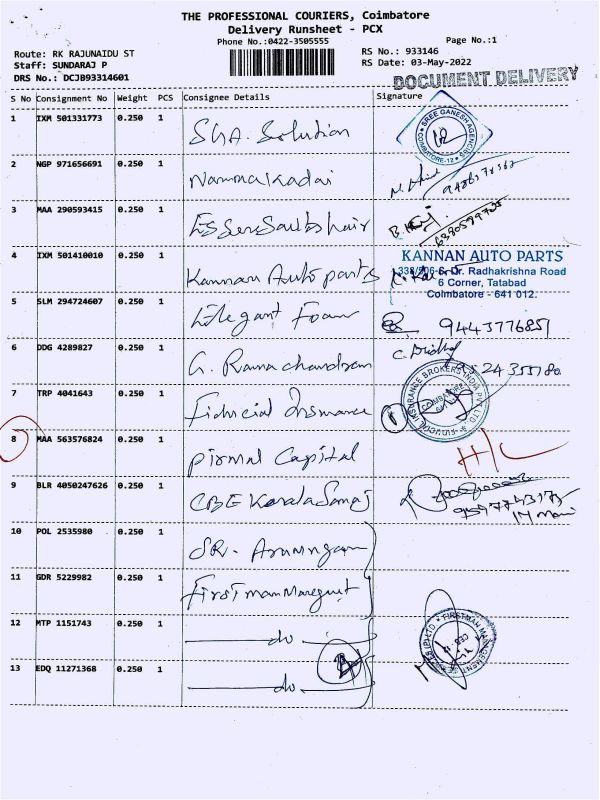 THE PROFESSIONAL COURIERS, Coimbatore
Delivery Runsheet - PCX
Phone No.:0422-3505555
Page No.:1
Route: RK RAJUNAIDU ST
RS No.: 933146
Staff: SUNDARAJ P
RS Date: 03-May-2022
DRS No.: DCJB93314601
DOCUMENT DELIVERY
S No Consignment No Weight PCS Consignee Details Signature
1 IXM 501331773 0.250 1 SGA. Solution
SREE GANESH AGENCIES COIMBATORE-12
2 NGP 971656691 0.250 1 Nammalkadai
3 MAA 290593415 0.250 1
4 IXM 501410010 0.250 1 Kannan Auto parts
KANNAN AUTO PARTS
Dr. Radhakrishna Road
6 Corner, Tatabad
Coimbatore - 641 012.
5 SLM 294724607 0.250 1 Elegant Foam
6 DDG 4289827 0.250 1 G. Ramachandram
7 TRP 4041643 0.250 1 Fiducial Insurance
FIDUCIAL INSURANCE BROKERS INDIA PVT LTD
COIMBATORE
8 MAA 563576824 0.250 1 Pirmal Capital
9 BLR 4050247626 0.250 1 CBE Kerala Samaj
10 POL 2535980 0.250 1 SR. Arumugam
11 GDR 5229982 0.250 1 First man Management
12 MTP 1151743 0.250 1 do
FIRSTMAN MANAGEMENT
13 EDQ 11271368 0.250 1 do